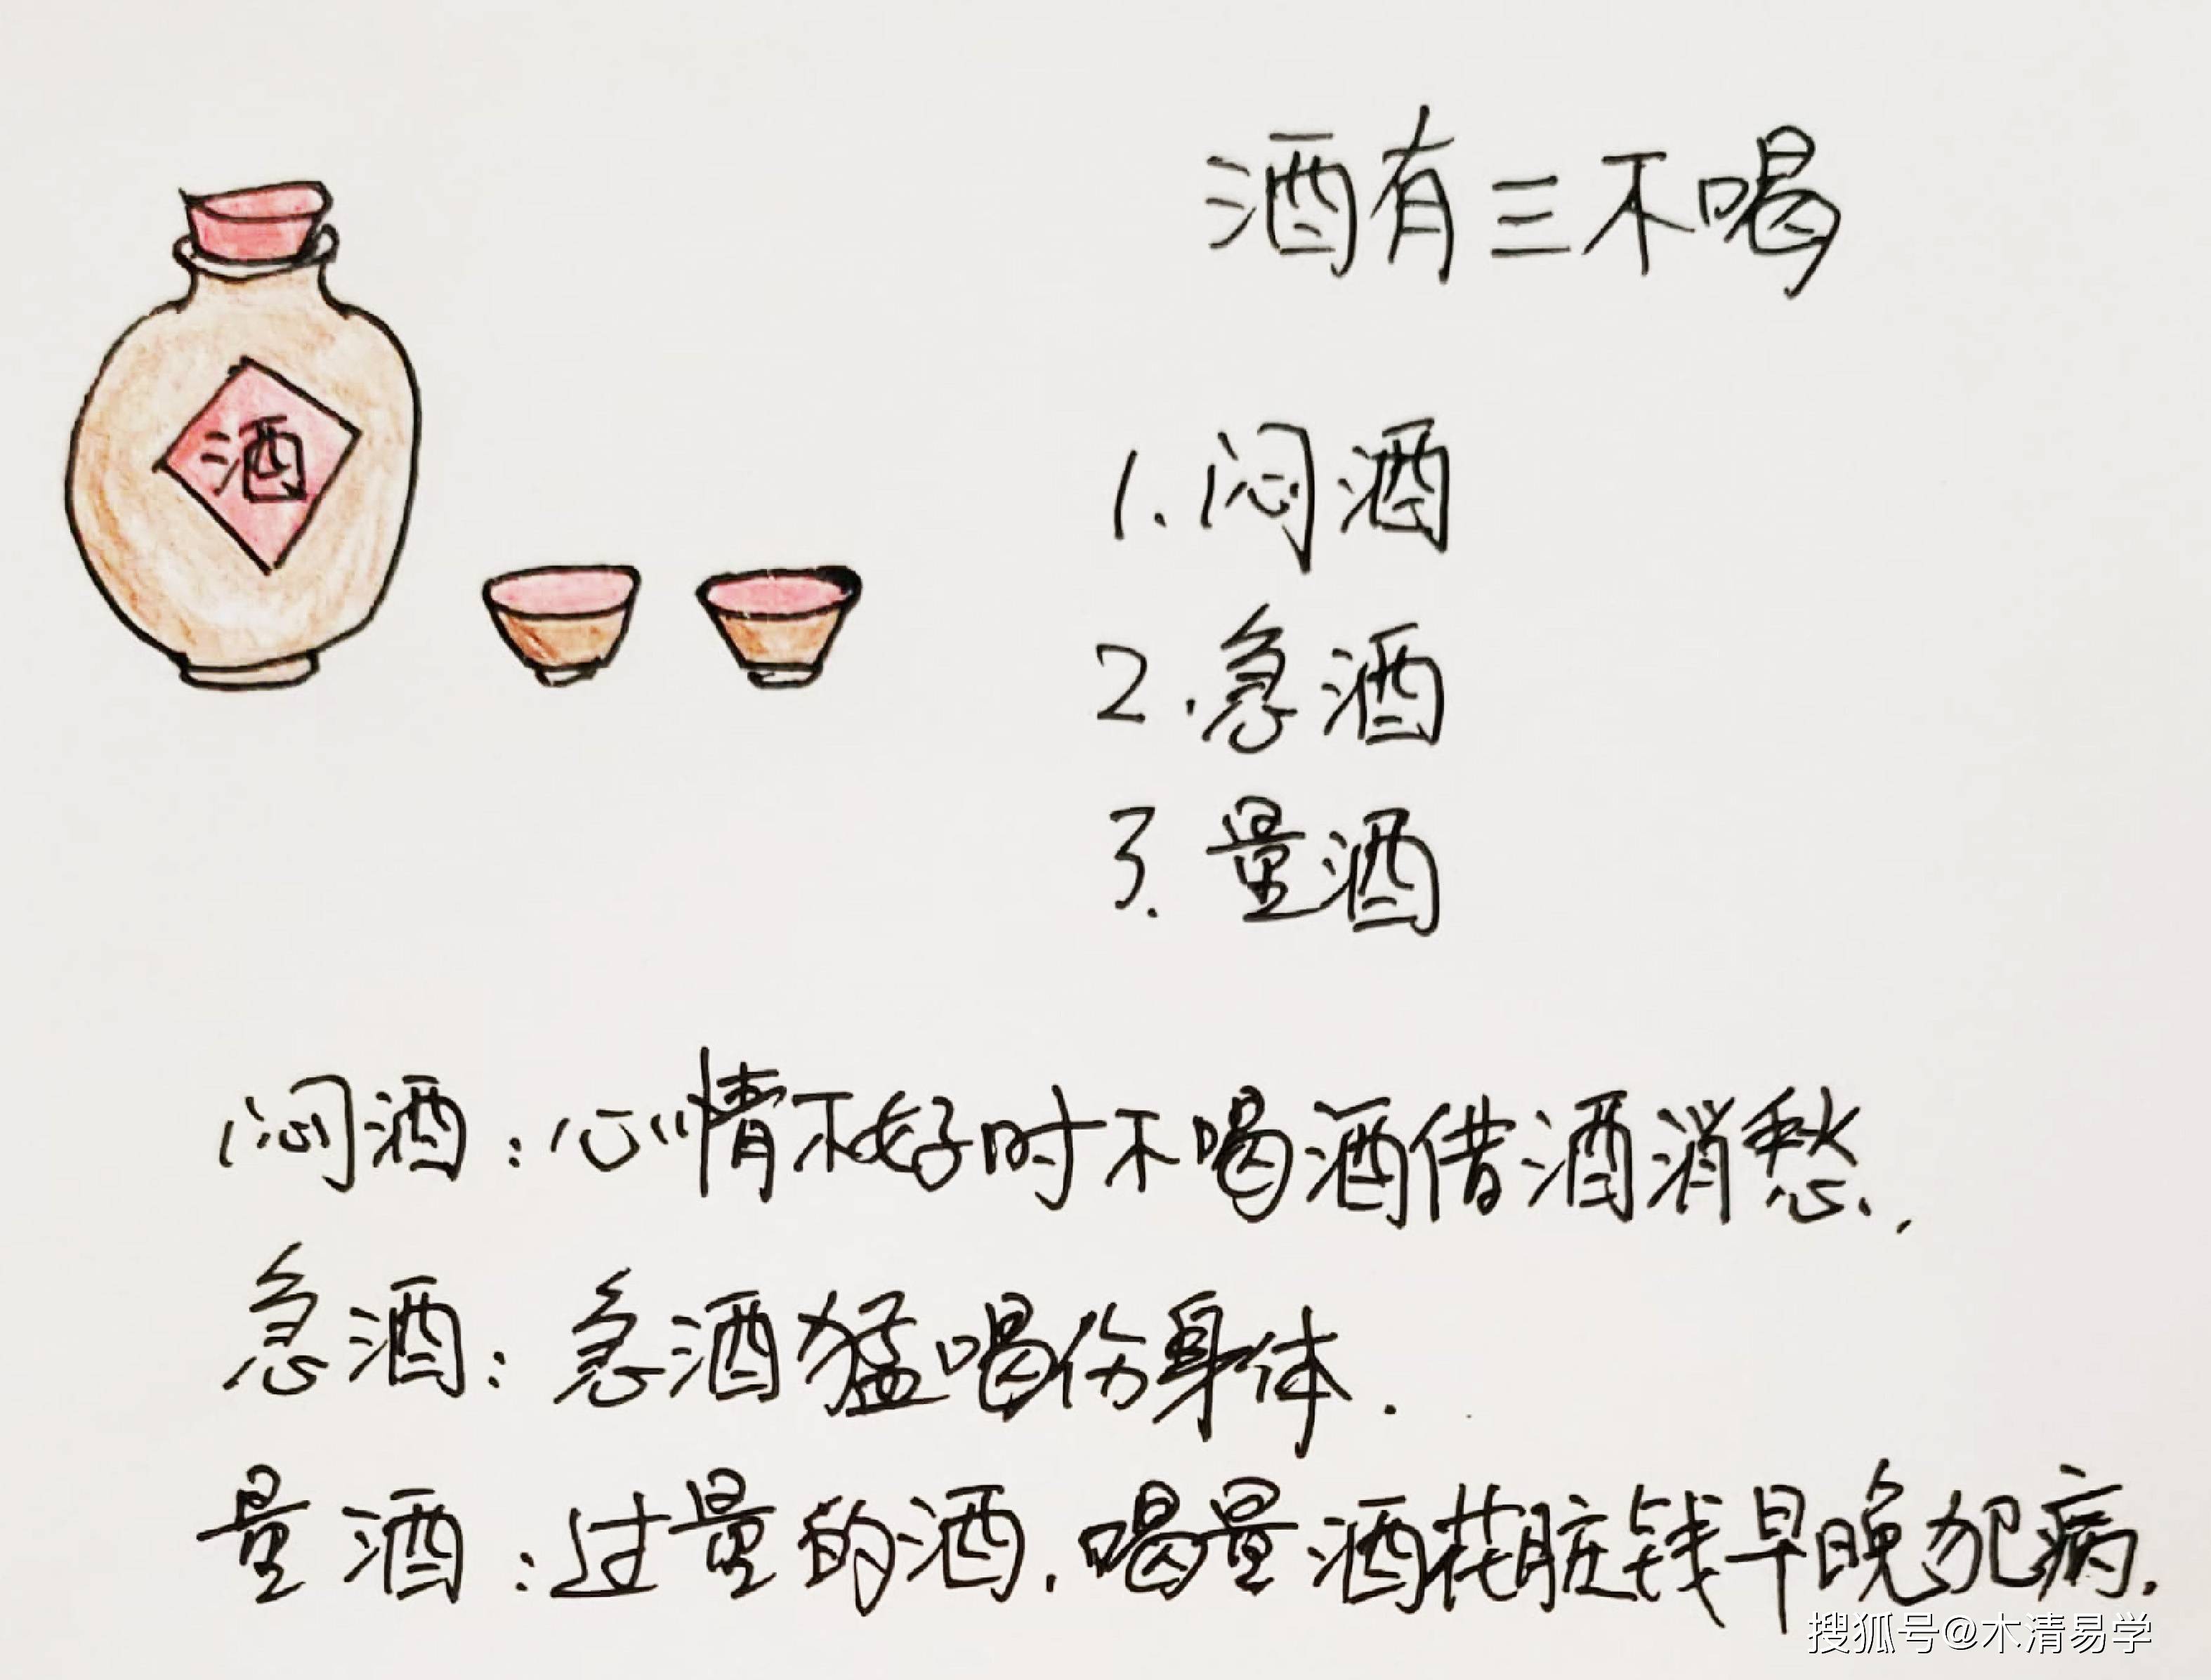 酒有三不喝
酒
1.闷酒
2.急酒
3.量酒
闷酒:心情不好时不喝酒借酒消愁.
急酒:急酒猛喝伤身体.
量酒:过量的酒.喝量酒花脏钱早晚犯病.
搜狐号@木清易学